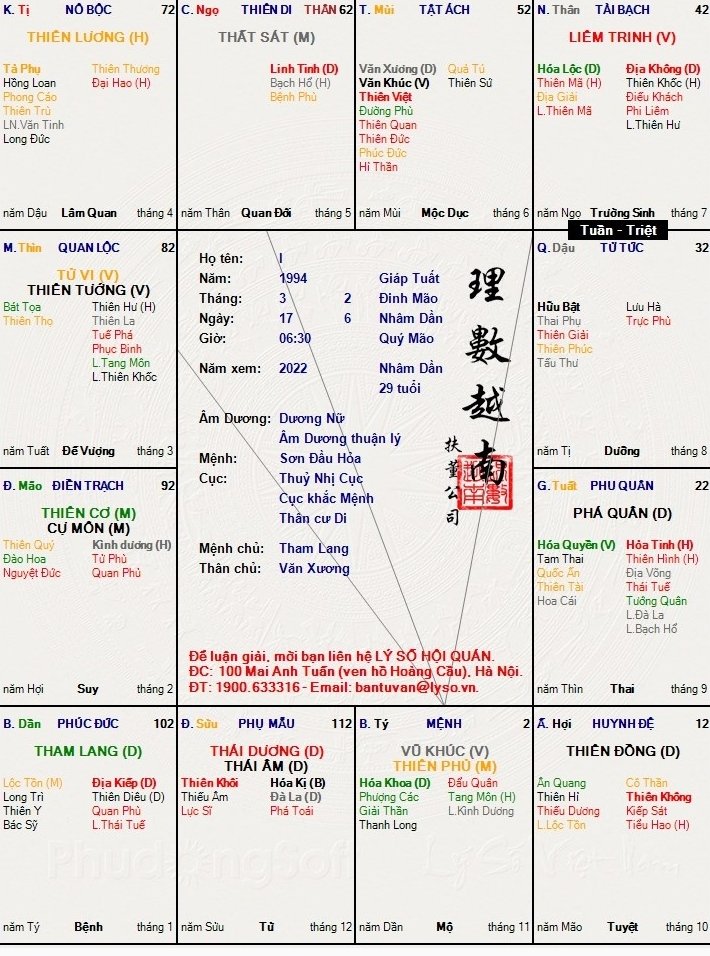 K. Tị NÔ BỘC 72
THIÊN LƯƠNG (H)
Tả Phụ Thiên Thương
Hồng Loan Đại Hao (H)
Phong Cáo
Thiên Trù
LN.Văn Tinh
Long Đức
năm Dậu Lâm Quan tháng 4
C. Ngọ THIÊN DI THÂN 62
THẤT SÁT (M)
Linh Tinh (D)
Bạch Hổ (H)
Bệnh Phù
năm Thân Quan Đới tháng 5
T. Mùi TẬT ÁCH 52
Văn Xương (D) Quả Tú
Văn Khúc (V) Thiên Sứ
Thiên Việt
Đường Phù
Thiên Quan
Thiên Đức
Phúc Đức
Hỉ Thần
năm Mùi Mộc Dục tháng 6
N. Thân TÀI BẠCH 42
LIÊM TRINH (V)
Hóa Lộc (D) Địa Không (D)
Thiên Mã (H) Thiên Khốc (H)
Địa Giải Điếu Khách
L.Thiên Mã Phi Liêm
L.Thiên Hư
năm Ngọ Trường Sinh tháng 7
Tuần - Triệt
M. Thìn QUAN LỘC 82
TỬ VI (V)
THIÊN TƯỚNG (V)
Bát Tọa Thiên Hư (H)
Thiên Thọ Thiên La
Tuế Phá
Phục Binh
L.Tang Môn
L.Thiên Khốc
năm Tuất Đế Vượng tháng 3
Họ tên: I
Năm: 1994 Giáp Tuất
Tháng: 3 2 Đinh Mão
Ngày: 17 6 Nhâm Dần
Giờ: 06:30 Quý Mão
Năm xem: 2022 Nhâm Dần
29 tuổi
Âm Dương: Dương Nữ
Âm Dương thuận lý
Mệnh: Sơn Đầu Hỏa
Cục: Thuỷ Nhị Cục
Cục khắc Mệnh
Thân cư Di
Mệnh chủ: Tham Lang
Thân chủ: Văn Xương
理數越南
扶董公司
Để luận giải, mời bạn liên hệ LÝ SỐ HỘI QUÁN.
ĐC: 100 Mai Anh Tuấn (ven hồ Hoàng Cầu), Hà Nội.
ĐT: 1900.633316 - Email: bantuvan@lyso.vn.
Q. Dậu TỬ TỨC 32
Hữu Bật Lưu Hà
Thai Phụ Trực Phù
Thiên Giải
Thiên Phúc
Tấu Thư
năm Tị Dưỡng tháng 8
Đ. Mão ĐIỀN TRẠCH 92
THIÊN CƠ (M)
CỰ MÔN (M)
Thiên Quý Kình dương (H)
Đào Hoa Tử Phù
Nguyệt Đức Quan Phủ
năm Hợi Suy tháng 2
G. Tuất PHU QUÂN 22
PHÁ QUÂN (D)
Hóa Quyền (V) Hỏa Tinh (H)
Tam Thai Thiên Hình (H)
Quốc Ấn Địa Võng
Thiên Tài Thái Tuế
Hoa Cái Tướng Quân
L.Đà La
L.Bạch Hổ
năm Thìn Thai tháng 9
B. Dần PHÚC ĐỨC 102
THAM LANG (D)
Lộc Tồn (M) Địa Kiếp (D)
Long Trì Thiên Diêu (D)
Thiên Y Quan Phù
Bác Sỹ L.Thái Tuế
năm Tý Bệnh tháng 1
Đ. Sửu PHỤ MẪU 112
THÁI DƯƠNG (D)
THÁI ÂM (D)
Thiên Khôi Hóa Kị (B)
Thiếu Âm Đà La (D)
Lực Sĩ Phá Toái
năm Sửu Tử tháng 12
B. Tý MỆNH 2
VŨ KHÚC (V)
THIÊN PHỦ (M)
Hóa Khoa (D) Đẩu Quân
Phượng Các Tang Môn (H)
Giải Thần L.Kình Dương
Thanh Long
năm Dần Mộ tháng 11
Ấ. Hợi HUYNH ĐỆ 12
THIÊN ĐỒNG (D)
Ân Quang Cô Thần
Thiên Hỉ Thiên Không
Thiếu Dương Kiếp Sát
L.Lộc Tồn Tiểu Hao (H)
năm Mão Tuyệt tháng 10